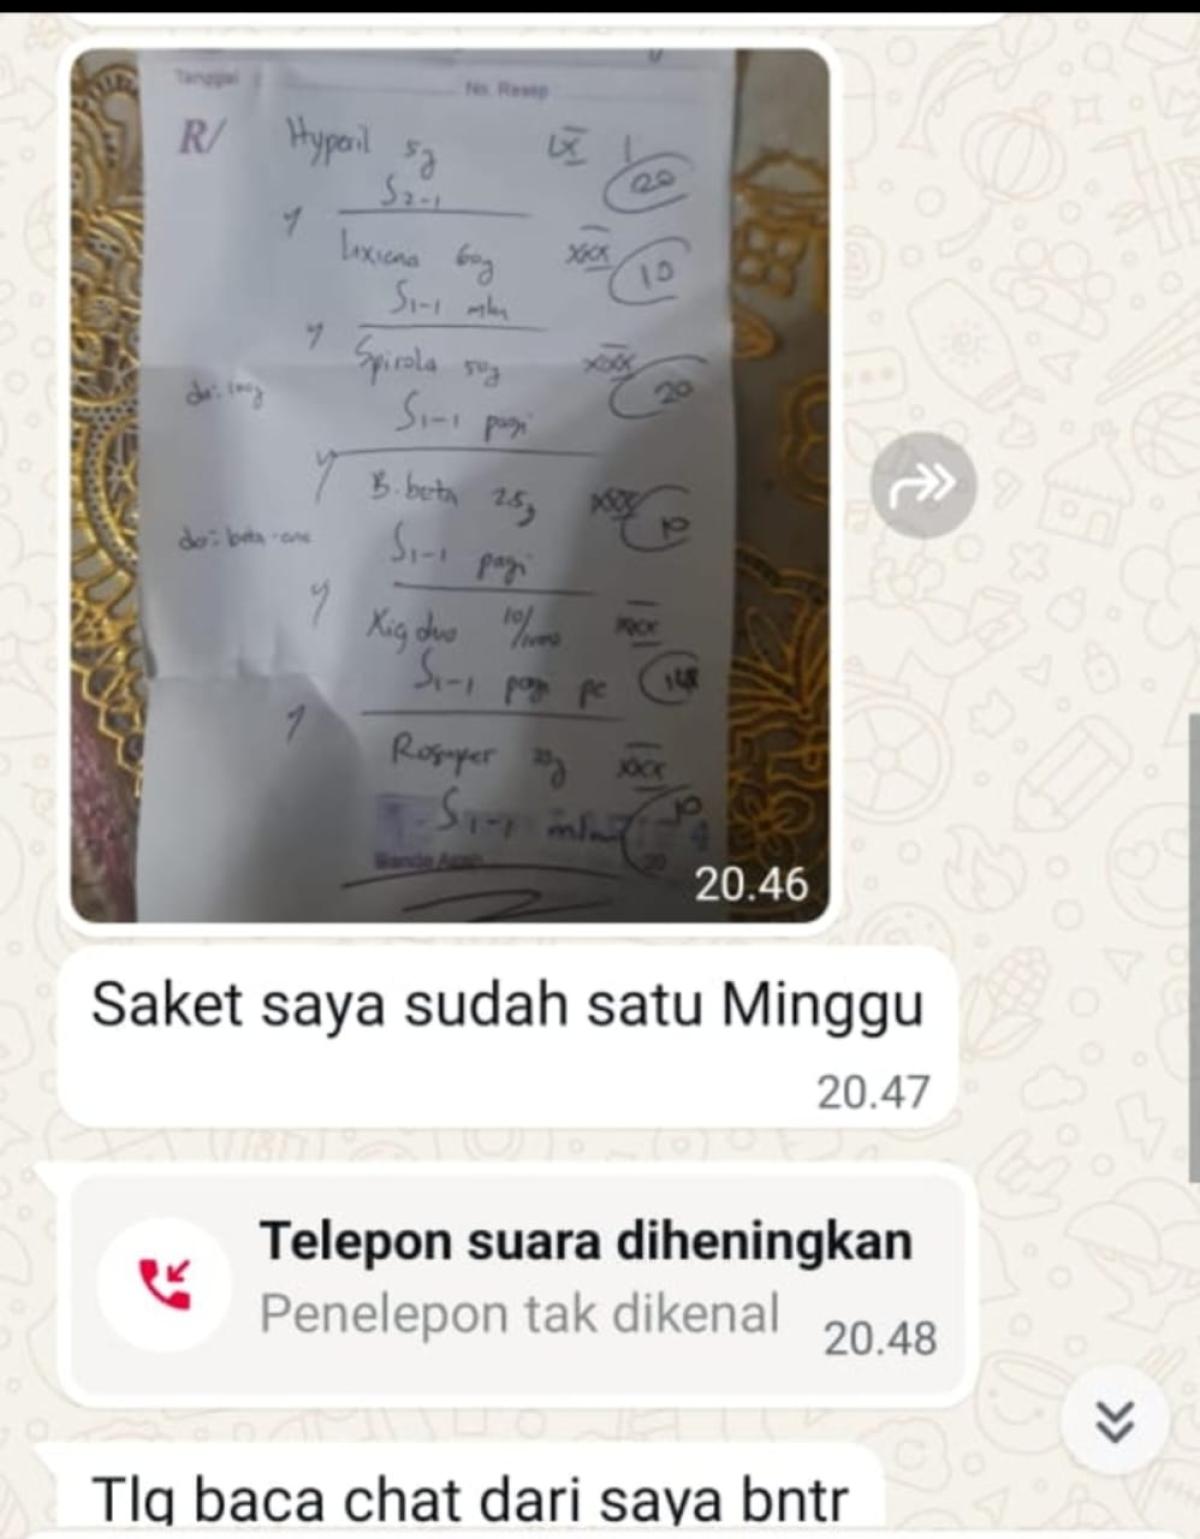 Tanggal
No. Resep
R/ Hyperil 5g LX
20
S2-1
Lixiana 60g XXX
10
S1-1 mlm
Spirola 50g XXX
20
do: 100g
S1-1 pagi
B. beta 2.5g XXX
10
do: beta-one
S1-1 pagi
Xigduo 10/1000 XXX
S1-1 pagi pc
Rosuper 20g XXX
S1-1 mlm
10
Banda Aceh
20.46
Saket saya sudah satu Minggu
20.47
Telepon suara diheningkan
Penelepon tak dikenal 20.48
Tlg baca chat dari saya bntr